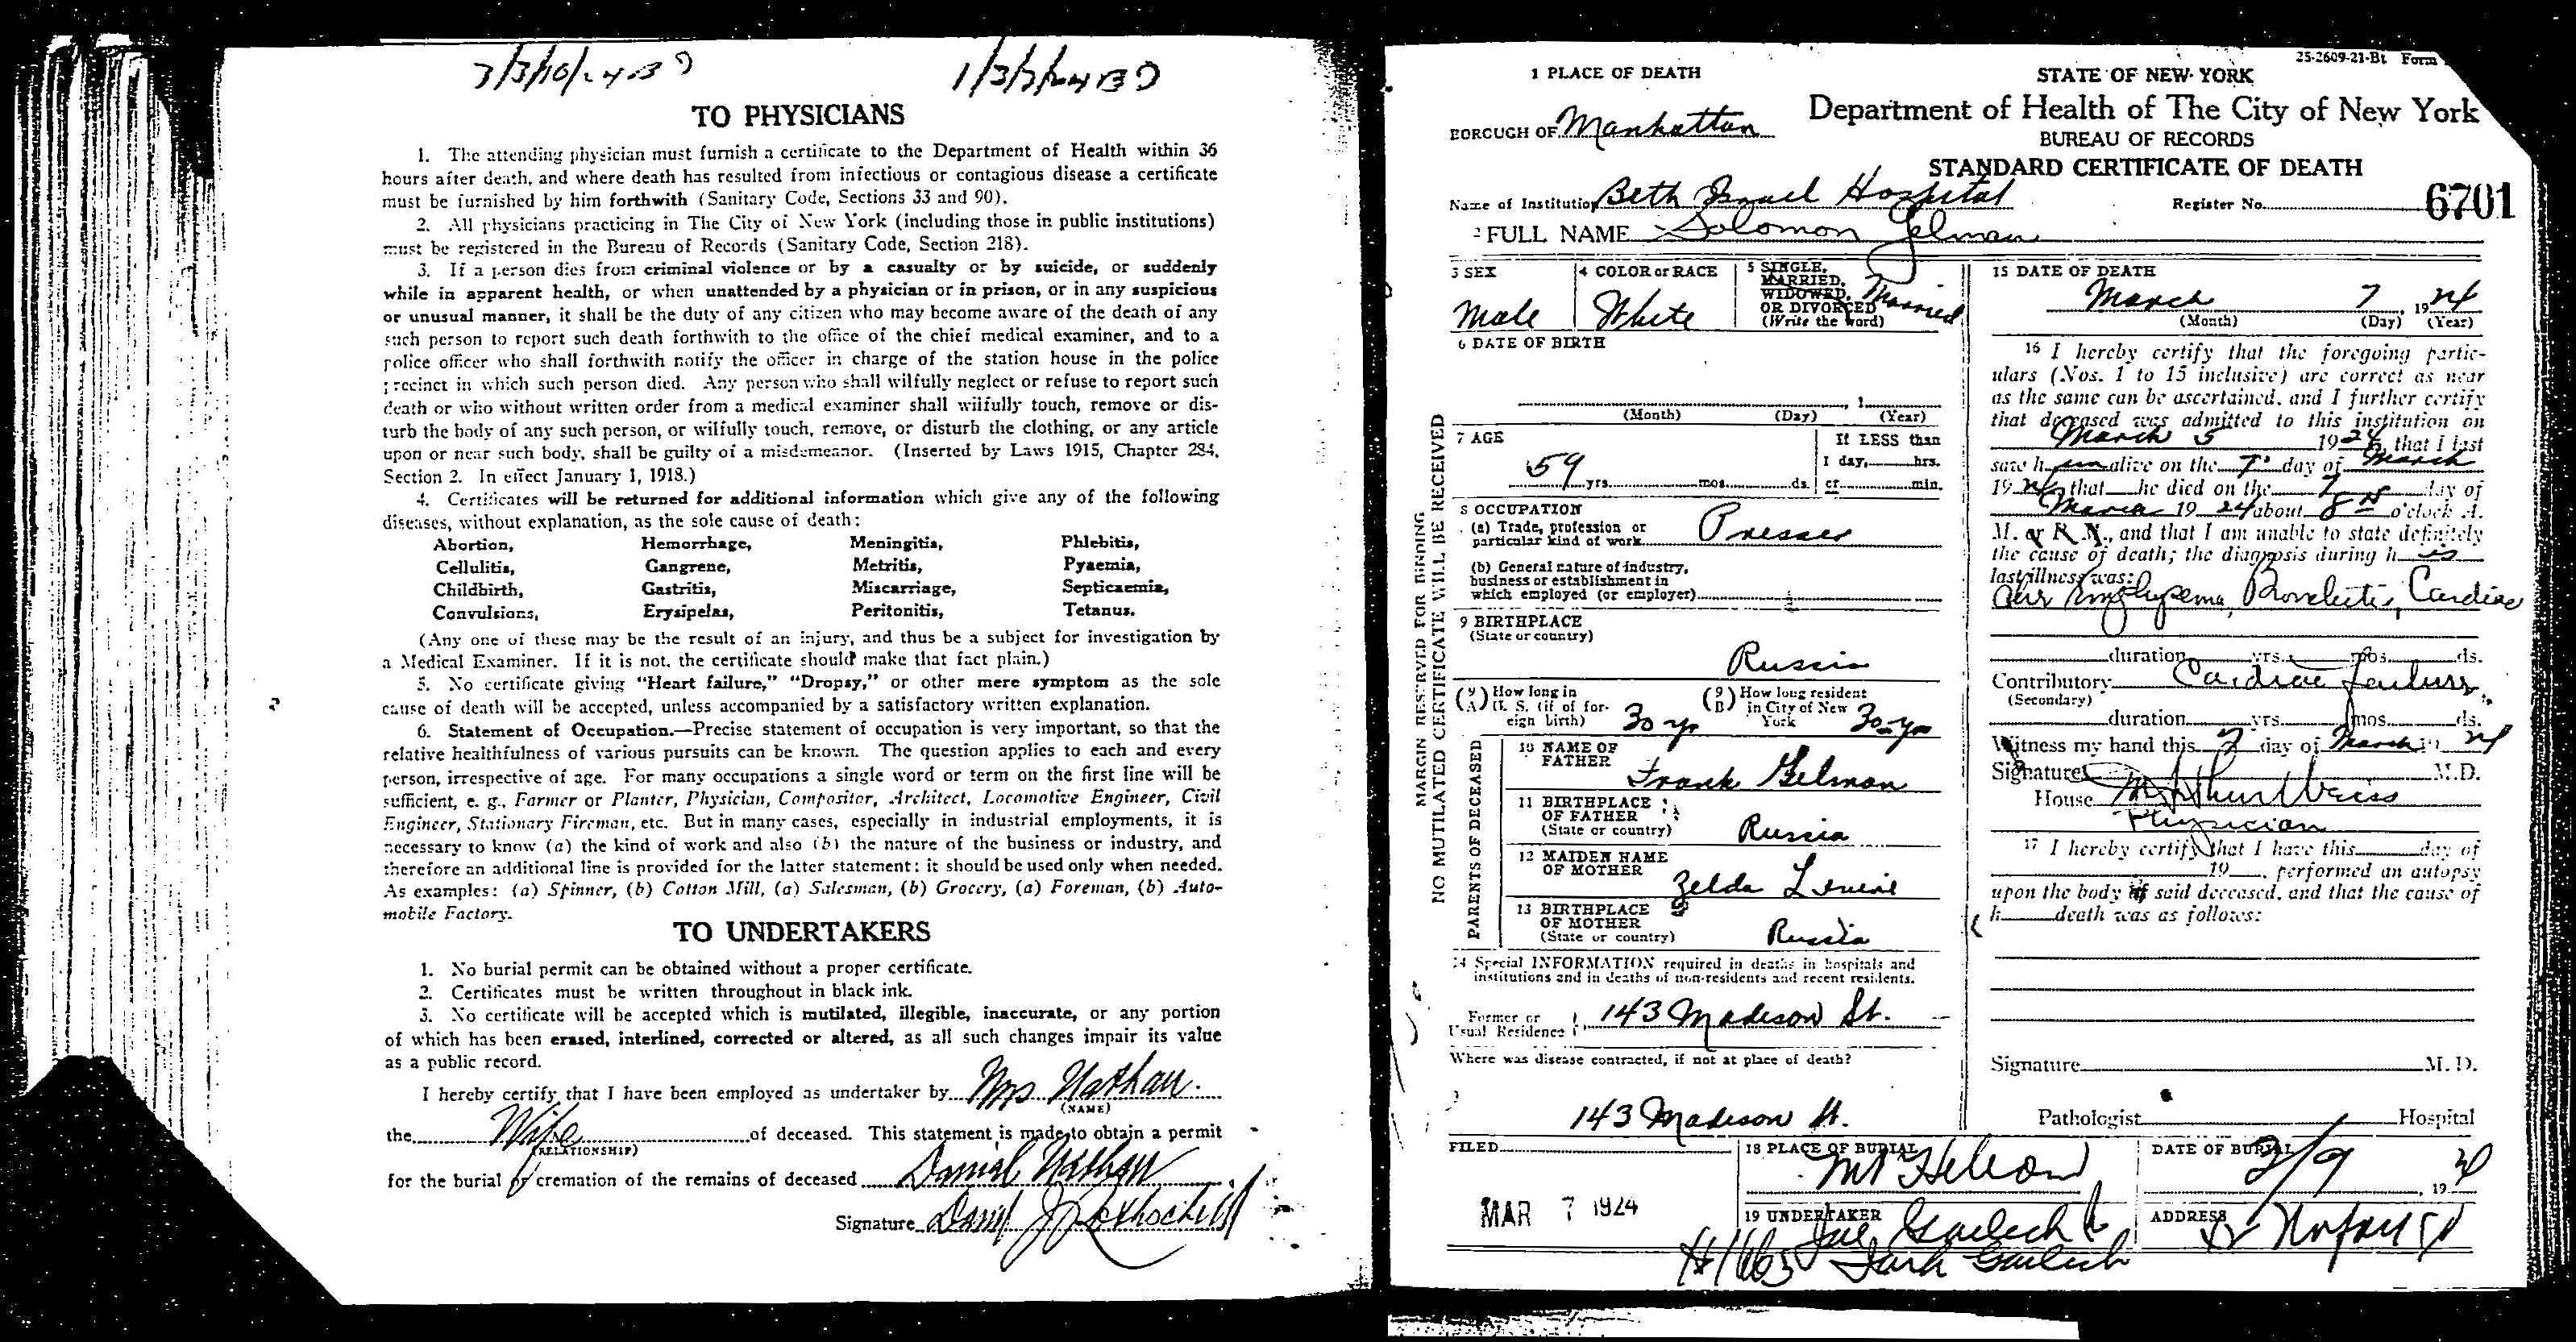 TO PHYSICIANS
1. The attending physician must furnish a certificate to the Department of Health within 36
hours after death, and where death has resulted from infectious or contagious disease a certificate
must be furnished by him forthwith (Sanitary Code, Sections 33 and 90).
2. All physicians practicing in The City of New York (including those in public institutions)
must be registered in the Bureau of Records (Sanitary Code, Section 218).
3. If a person dies from criminal violence or by a casualty or by suicide, or suddenly
while in apparent health, or when unattended by a physician or in prison, or in any suspicious
or unusual manner, it shall be the duty of any citizen who may become aware of the death of any
such person to report such death forthwith to the office of the chief medical examiner, and to a
police officer who shall forthwith notify the officer in charge of the station house in the police
precinct in which such person died. Any person who shall wilfully neglect or refuse to report such
death or who without written order from a medical examiner shall wilfully touch, remove or dis-
turb the body of any such person, or wilfully touch, remove, or disturb the clothing, or any article
upon or near such body, shall be guilty of a misdemeanor. (Inserted by Laws 1915, Chapter 284,
Section 2. In effect January 1, 1918.)
4. Certificates will be returned for additional information which give any of the following
diseases, without explanation, as the sole cause of death:
Abortion, Hemorrhage, Meningitis, Phlebitis,
Cellulitis, Gangrene, Metritis, Pyaemia,
Childbirth, Gastritis, Miscarriage, Septicaemia,
Convulsions, Erysipelas, Peritonitis, Tetanus.
(Any one of these may be the result of an injury, and thus be a subject for investigation by
a Medical Examiner. If it is not, the certificate should make that fact plain.)
5. No certificate giving "Heart failure," "Dropsy," or other mere symptom as the sole
cause of death will be accepted, unless accompanied by a satisfactory written explanation.
6. Statement of Occupation.—Precise statement of occupation is very important, so that the
relative healthfulness of various pursuits can be known. The question applies to each and every
person, irrespective of age. For many occupations a single word or term on the first line will be
sufficient, e. g., Farmer or Planter, Physician, Compositor, Architect, Locomotive Engineer, Civil
Engineer, Stationary Fireman, etc. But in many cases, especially in industrial employments, it is
necessary to know (a) the kind of work and also (b) the nature of the business or industry, and
therefore an additional line is provided for the latter statement: it should be used only when needed.
As examples: (a) Spinner, (b) Cotton Mill, (a) Salesman, (b) Grocery, (a) Foreman, (b) Auto-
mobile Factory.
TO UNDERTAKERS
1. No burial permit can be obtained without a proper certificate.
2. Certificates must be written throughout in black ink.
3. No certificate will be accepted which is mutilated, illegible, inaccurate, or any portion
of which has been erased, interlined, corrected or altered, as all such changes impair its value
as a public record.
I hereby certify that I have been employed as undertaker by Mrs Nathan.
(NAME)
the Wife of deceased. This statement is made to obtain a permit
(RELATIONSHIP)
for the burial or cremation of the remains of deceased Daniel Nathan
Signature
25-2609-21-Bt Form
1 PLACE OF DEATH
STATE OF NEW YORK
Department of Health of The City of New York
BOROUGH OF Manhattan
BUREAU OF RECORDS
STANDARD CERTIFICATE OF DEATH
Name of Institution Beth Israel Hospital
Register No. 6701
2 FULL NAME Solomon Gelman
3 SEX
Male
4 COLOR or RACE
White
5 SINGLE,
MARRIED,
WIDOWED,
OR DIVORCED
(Write the word)
Married
6 DATE OF BIRTH
, 1
(Month) (Day) (Year)
7 AGE
59 yrs. mos. ds.
If LESS than
1 day, hrs.
or min.
8 OCCUPATION
(a) Trade, profession or
particular kind of work Presser
(b) General nature of industry,
business or establishment in
which employed (or employer)
9 BIRTHPLACE
(State or country)
Russia
(9 A) How long in
U. S. (if of for-
eign birth) 30 yr
(9 B) How long resident
in City of New
York 30 yr
PARENTS OF DECEASED
10 NAME OF
FATHER
Frank Gelman
11 BIRTHPLACE
OF FATHER
(State or country)
Russia
12 MAIDEN NAME
OF MOTHER
Zelda Levine
13 BIRTHPLACE
OF MOTHER
(State or country)
Russia
14 Special INFORMATION required in deaths in hospitals and
institutions and in deaths of non-residents and recent residents.
Former or
Usual Residence 143 Madison St.
Where was disease contracted, if not at place of death?
143 Madison St.
MARGIN RESERVED FOR BINDING
NO MUTILATED CERTIFICATE WILL BE RECEIVED
15 DATE OF DEATH
March 7, 1924
(Month) (Day) (Year)
16 I hereby certify that the foregoing partic-
ulars (Nos. 1 to 15 inclusive) are correct as near
as the same can be ascertained, and I further certify
that deceased was admitted to this institution on
March 5 1924, that I last
saw him alive on the 7 day of March
1924, that he died on the 7 day of
March 1924 about 8 o'clock A.
M. or P. M., and that I am unable to state definitely
the cause of death; the diagnosis during his
last illness was:
Emphysema, Bronchitis, Cardiac
duration yrs. mos. ds.
Contributory Cardiac failure
(Secondary)
duration yrs. mos. ds.
Witness my hand this 7 day of March 19 24
Signature M. Arthur Weiss M.D.
House Physician
17 I hereby certify that I have this day of
19 , performed an autopsy
upon the body of said deceased, and that the cause of
h death was as follows:
Signature M. D.
Pathologist Hospital
FILED
MAR 7 1924
18 PLACE OF BURIAL
Mt Hebron
DATE OF BURIAL
, 19
19 UNDERTAKER
ADDRESS